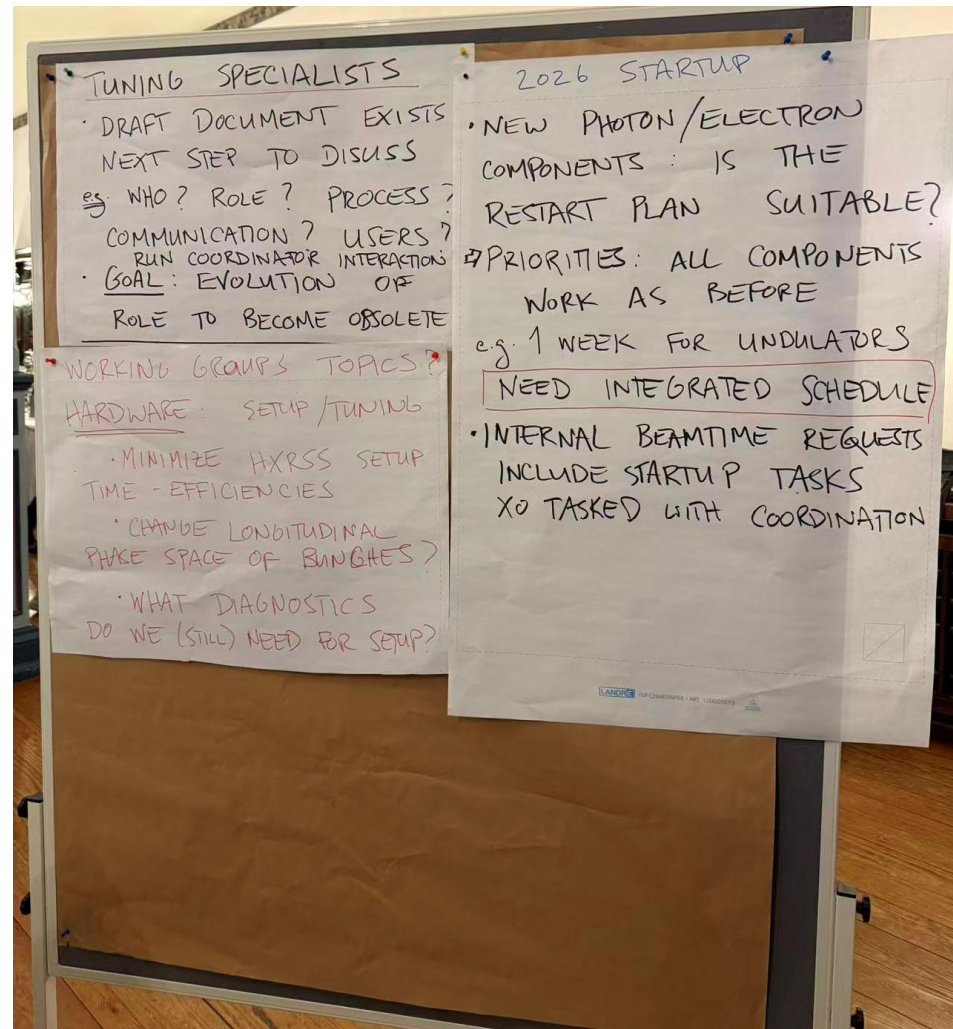 TUNING SPECIALISTS
· DRAFT DOCUMENT EXISTS
NEXT STEP TO DISUSS
e.g. WHO? ROLE? PROCESS?
COMMUNICATION? USERS?
RUN COORDINATOR INTERACTION
· GOAL: EVOLUTION OF
ROLE TO BECOME OBSOLETE
WORKING GROUPS TOPICS?
HARDWARE: SETUP/TUNING
· MINIMIZE HXRSS SETUP
TIME - EFFICIENCIES
· CHANGE LONGITUDINAL
PHASE SPACE OF BUNCHES?
· WHAT DIAGNOSTICS
DO WE (STILL) NEED FOR SETUP?
2026 STARTUP
· NEW PHOTON/ELECTRON
COMPONENTS: IS THE
RESTART PLAN SUITABLE?
⇒ PRIORITIES: ALL COMPONENTS
WORK AS BEFORE
e.g. 1 WEEK FOR UNDULATORS
NEED INTEGRATED SCHEDULE
· INTERNAL BEAMTIME REQUESTS
INCLUDE STARTUP TASKS
XO TASKED WITH COORDINATION
LANDRÉ